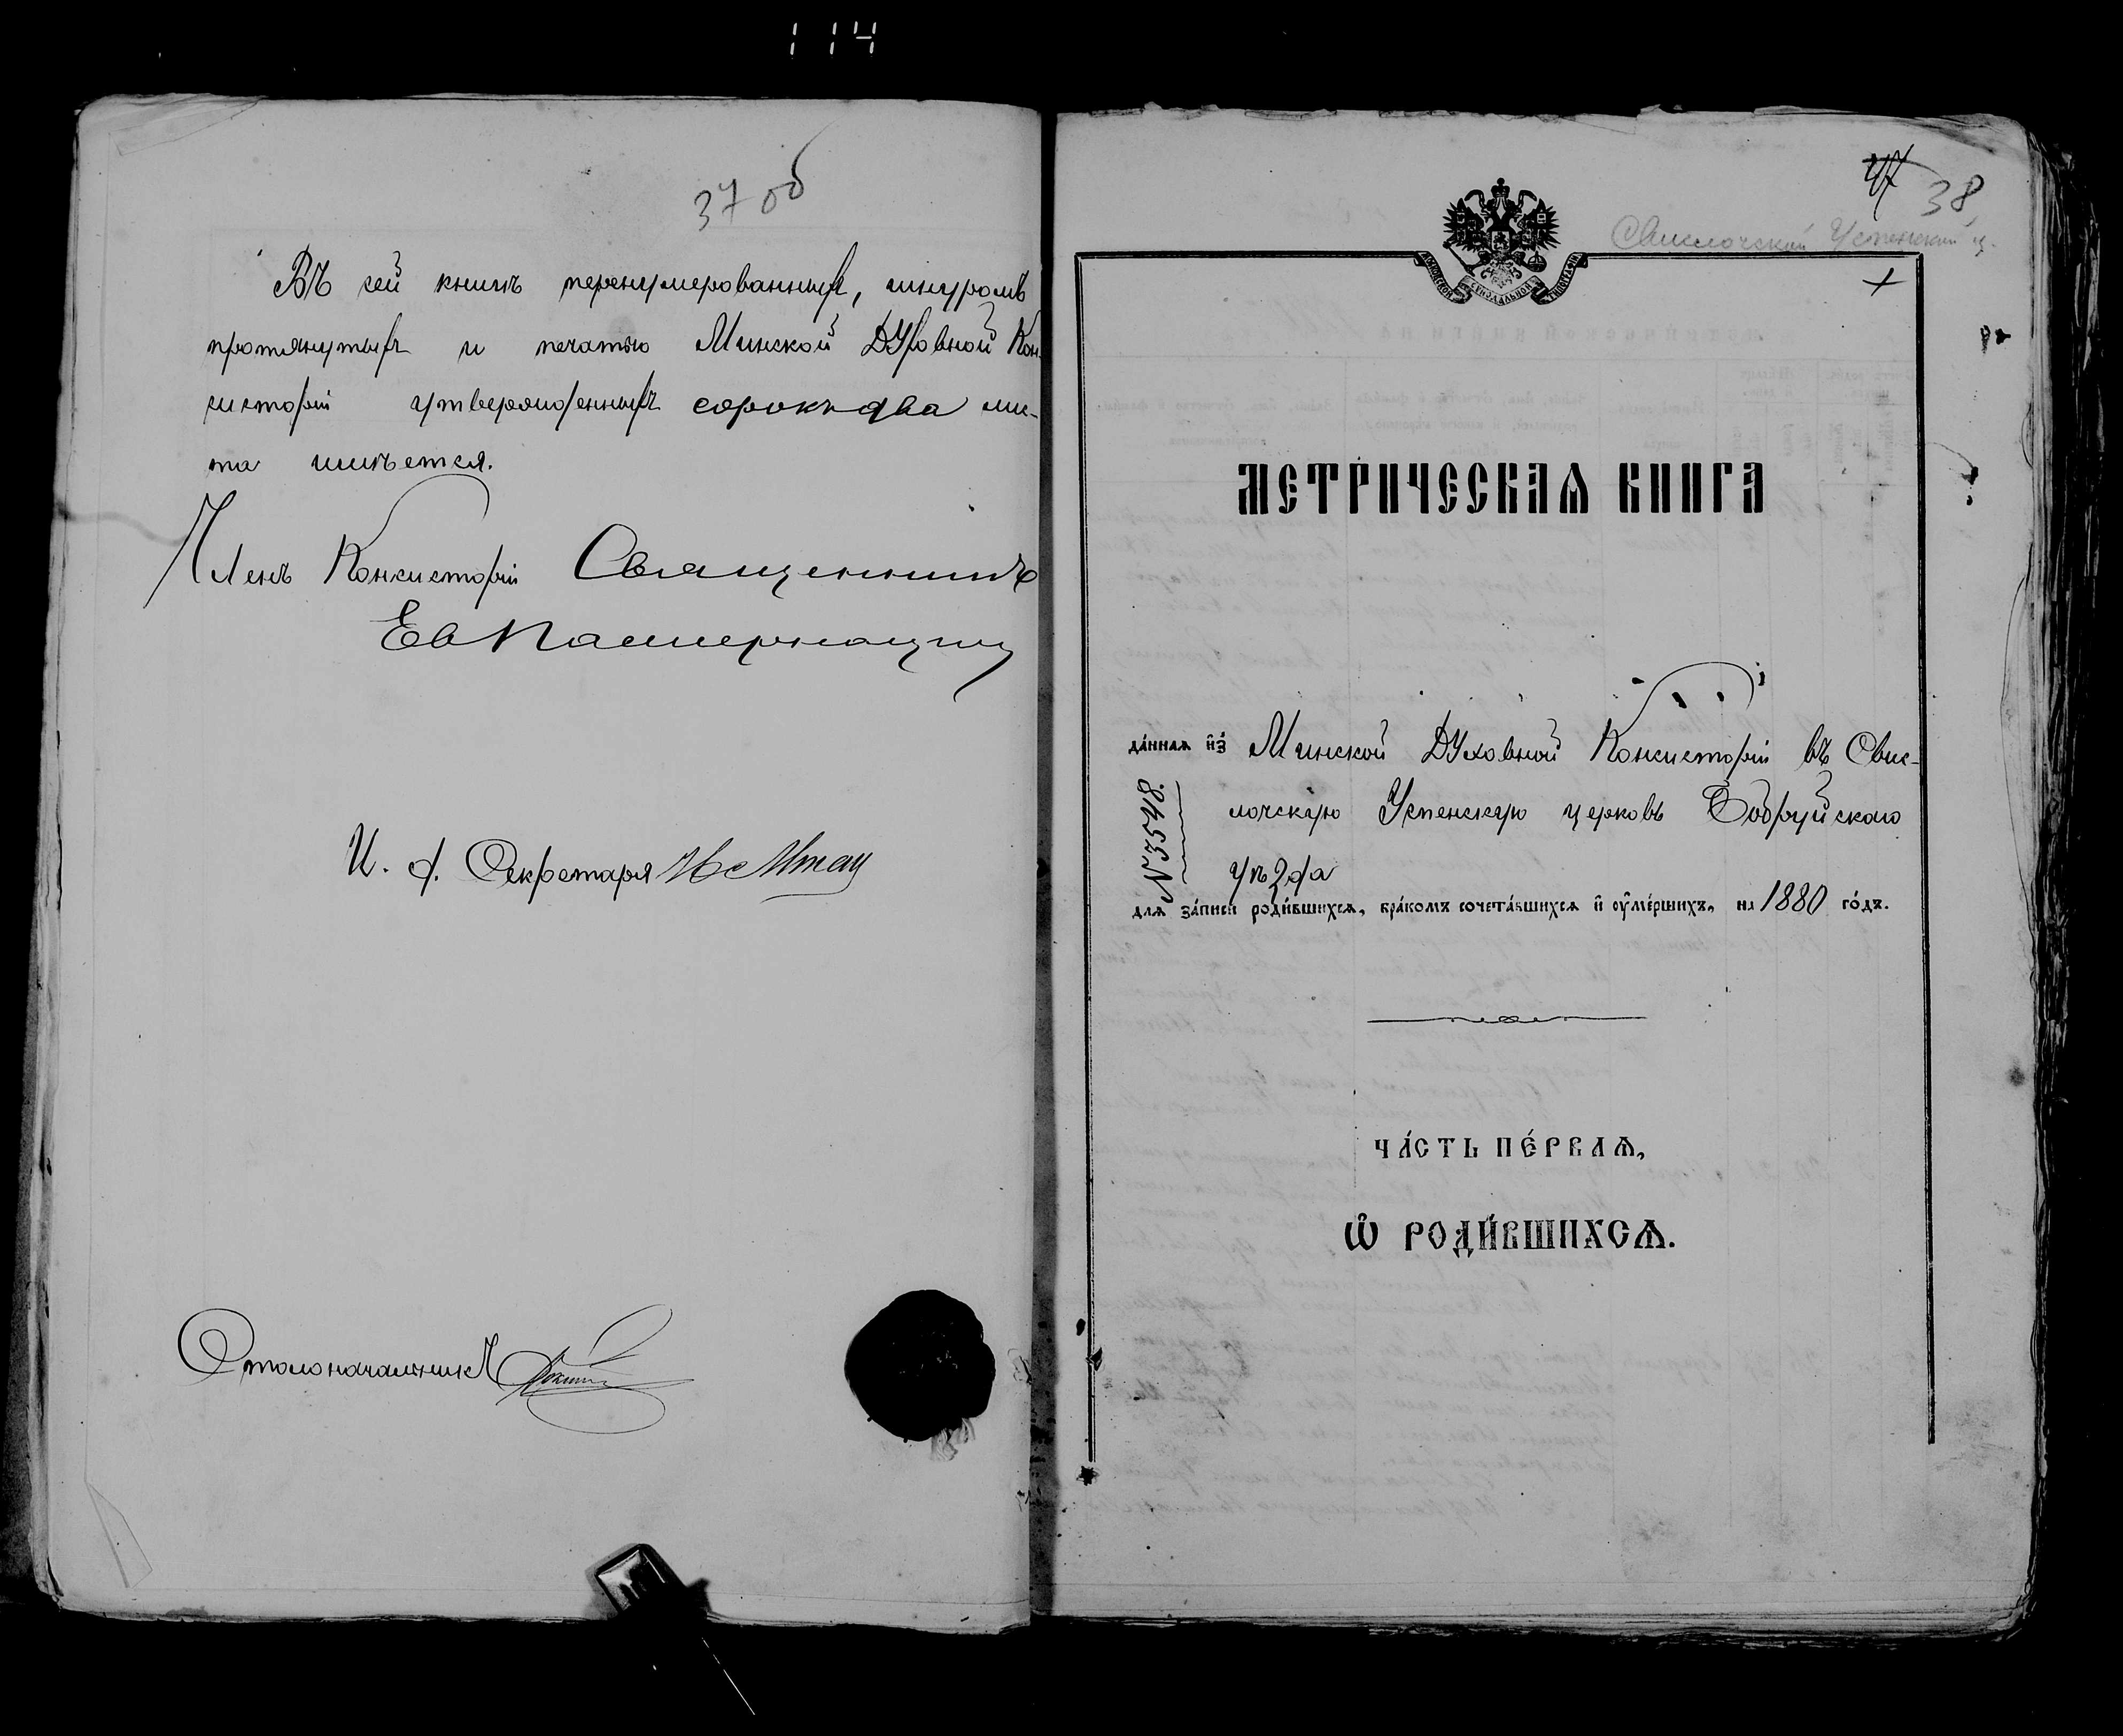 114
37 об
Въ сей книгѣ перенумерованныхъ, шнуромъ
протянутыхъ и печатью Минской Духовной Кон-
систоріи утвержденныхъ сорокъ два лис-
та имѣется.
Членъ Консисторіи Священникъ
И. д. Секретаря
Столоначальникъ
47
38
Свислочской Успенской ц.
МОСКОВСКОЙ СѴНОДАЛЬНОЙ ТИПОГРАФІИ
МЕТРИЧЕСКАѦ КНИГА
да́ннаѧ и҆з̾ Минской Духовной Консисторіи въ Свис-
лочскую Успенскую церковь Бобруйскаго
уѣзда
№ 3548.
длѧ за́писи роди́вшихсѧ, бра́комъ сочета́вшихсѧ и҆ ᲂу҆ме́ршихъ, на 1880 го́дъ.
ЧА́СТЬ ПЕ́РВАѦ,
Ѽ РОДИ́ВШИХСѦ.